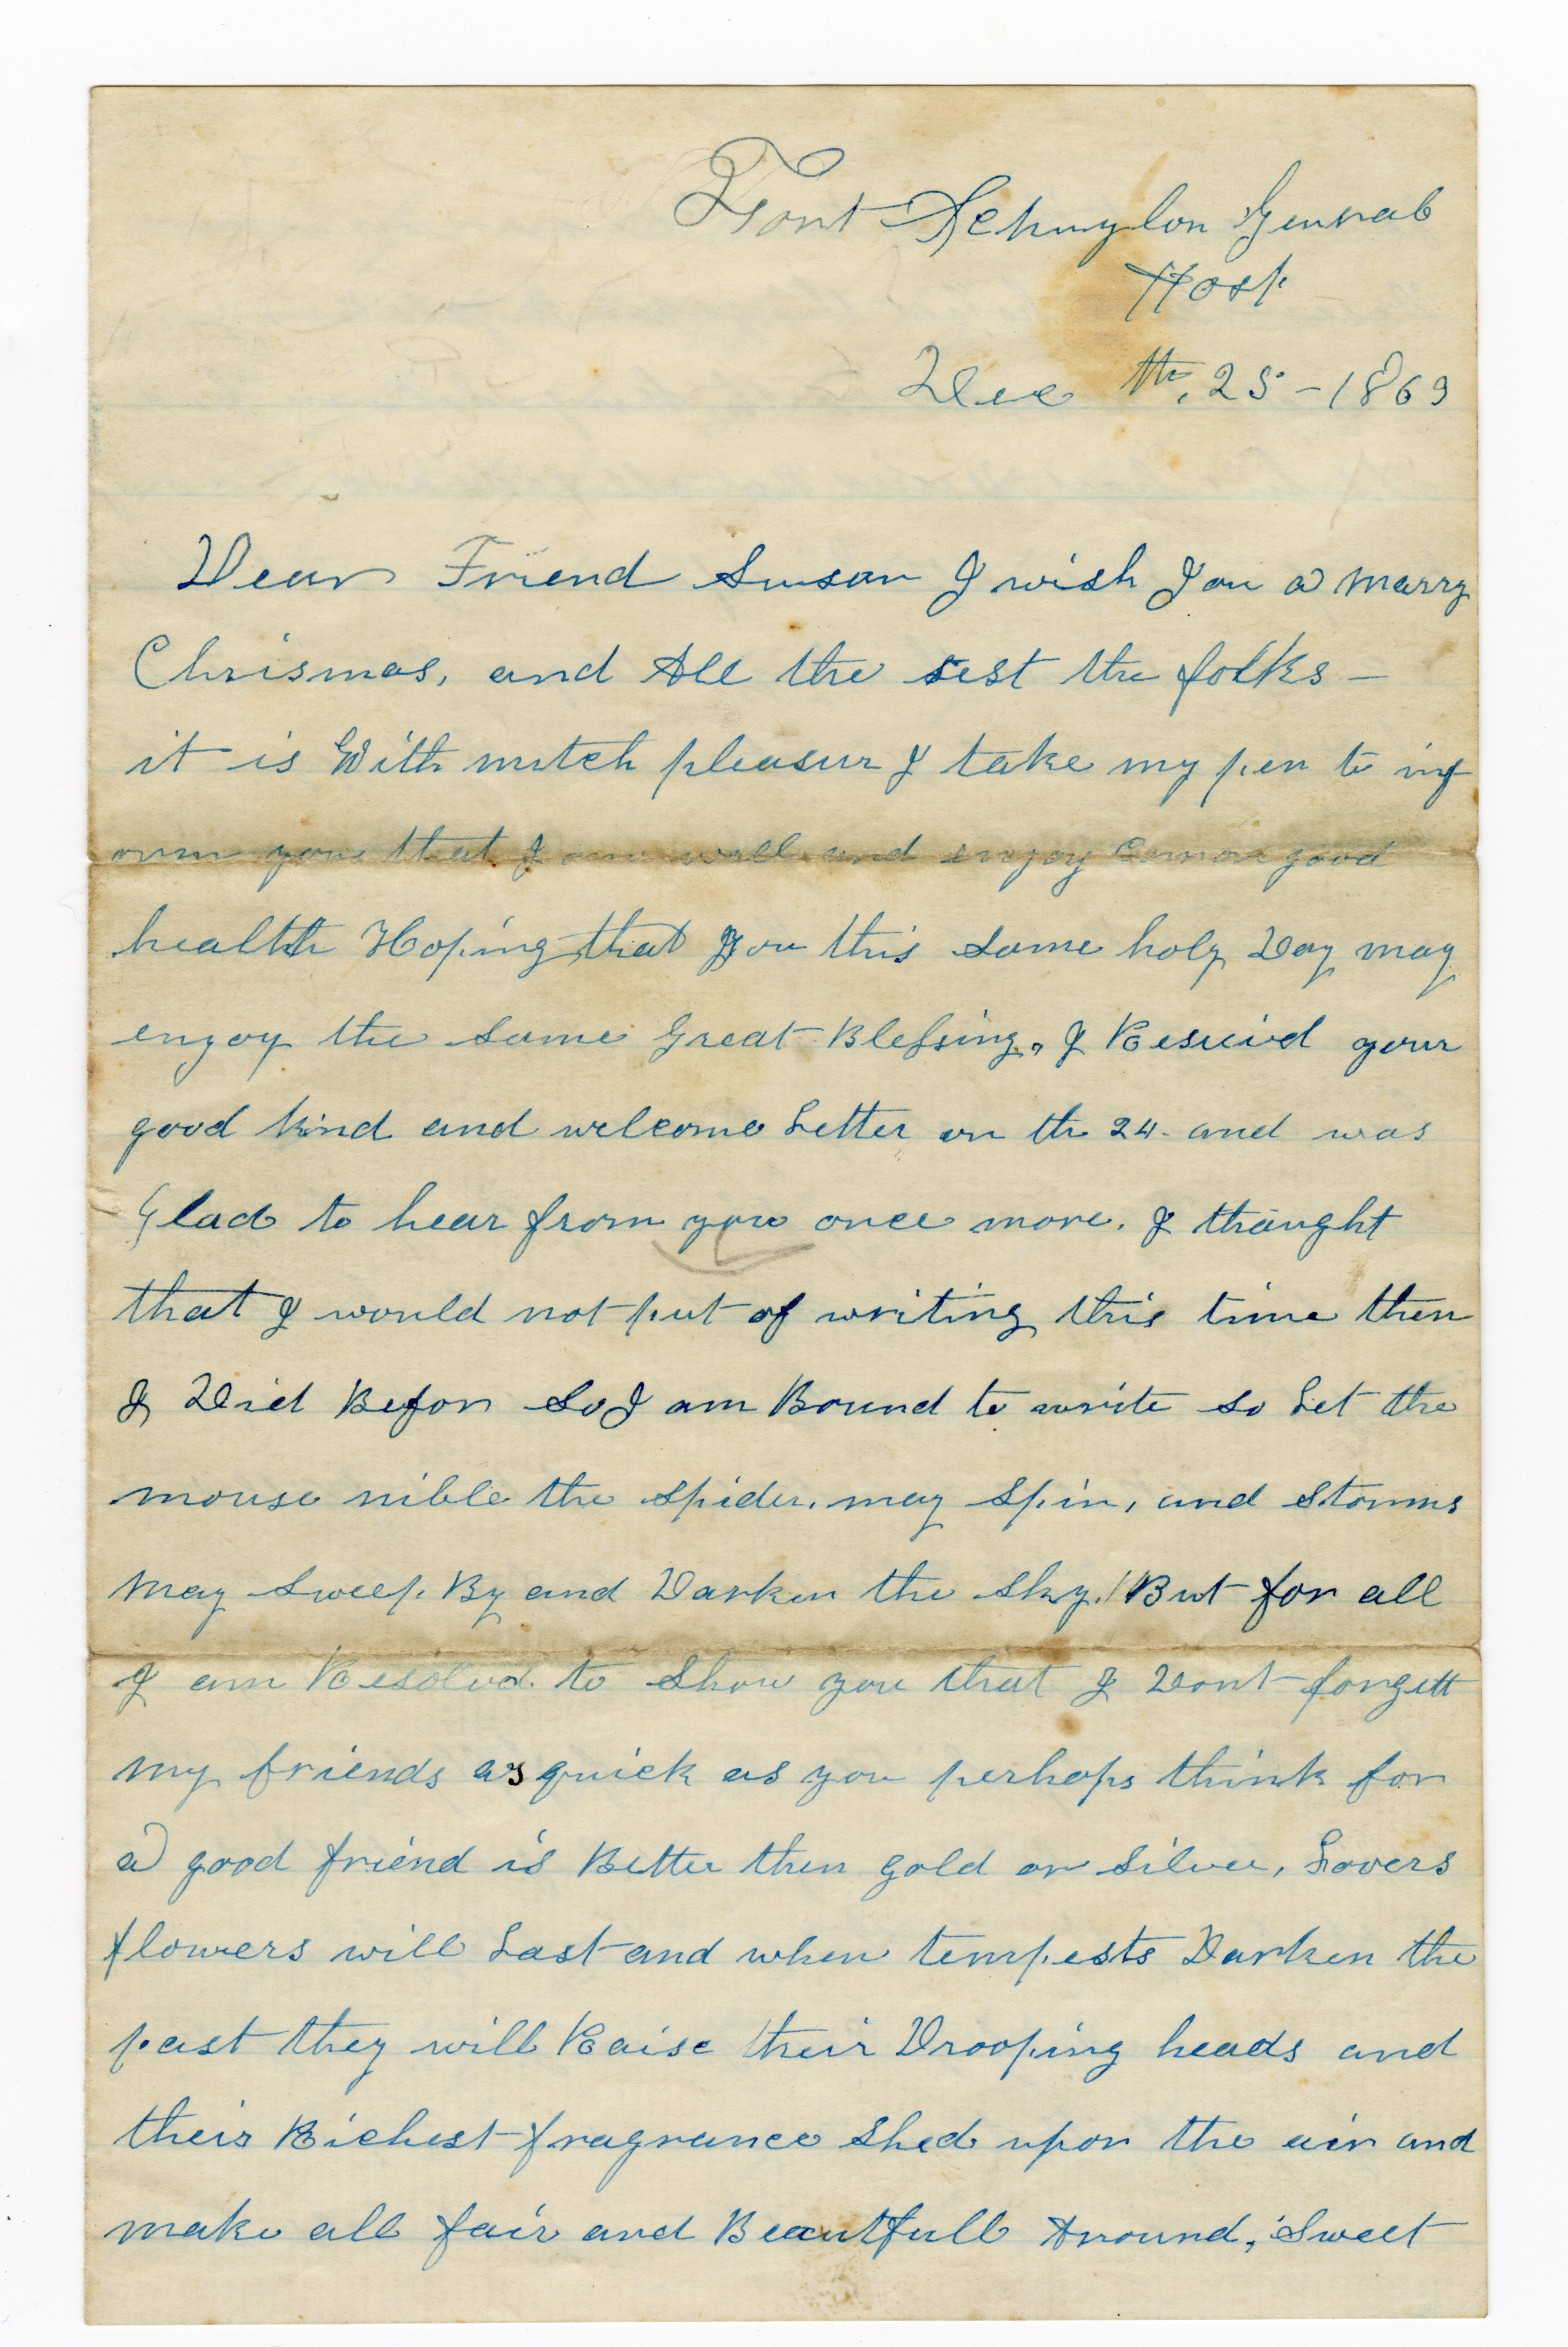 Fort Schuylor General
Hosp
Dec th, 25 - 1863
Dear Friend Susan I wish You a marry
Chrismas, and All the rest the folks -
it is With mutch pleasur I take my pen to inf
orm you that I am well and enjoy Comon good
health Hoping that You this same holy Day may
enjoy the same Great Blessing, I Resieivd your
good kind and welcome Letter on th 24. and was
Glad to hear from you once more. I thaught
that I would not put of writing this time then
I Did Befor So I am Bound to write so Let the
mouse nible the spider. may spin, and storms
may sweep By and Darken the sky. But for all
I am Resolvd. to Show you that I Dont forgett
my friends as quick as you perhaps think for
a good friend is Better then gold or silver, Lovers
flowers will Last and when tempests Darken the
past they will Raise their Drooping heads and
their Richest fragrance shed upon the air and
make all fair and Beautfull Around, Sweet